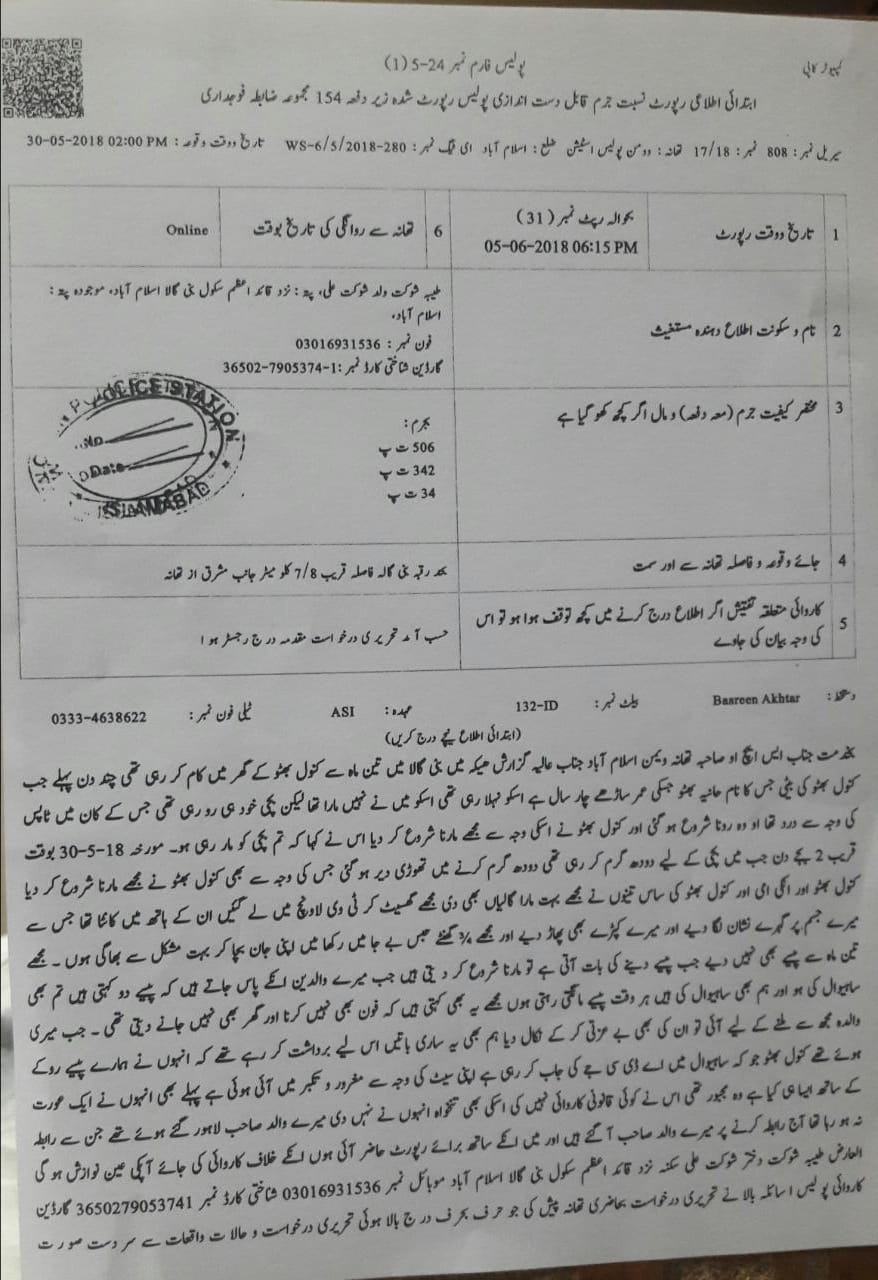 کمپیوٹر کاپی
پولیس فارم نمبر 24-5 (1)
ابتدائی اطلاعی رپورٹ نسبت جرم قابل دست اندازی پولیس رپورٹ شدہ زیر دفعہ 154 مجموعہ ضابطہ فوجداری
سیریل نمبر : 808 نمبر : 17/18 تھانہ : وومن پولیس اسٹیشن ضلع : اسلام آباد ای ٹیگ نمبر : WS-6/5/2018-280 تاریخ و وقت وقوعہ : 30-05-2018 02:00 PM
1 تاریخ و وقت رپورٹ بحوالہ رپٹ نمبر (31) 05-06-2018 06:15 PM 6 تھانہ سے روانگی کی تاریخ بوقت Online
2 نام و سکونت اطلاع دہندہ مستغیث
طیبہ شوکت ولد شوکت علی، پتہ : نزد قائد اعظم سکول بنی گالا اسلام آباد، موجودہ پتہ :
اسلام آباد،
فون نمبر : 03016931536
گارڈین شناختی کارڈ نمبر :36502-7905374-1
3 مختصر کیفیت جرم (معہ دفعہ) و مال اگر کچھ کھو گیا ہے
بجرم:
506 ت پ
342 ت پ
34 ت پ
POLICE STATION
No
Date
ISLAMABAD
4 جائے وقوعہ و فاصلہ تھانہ سے اور سمت
بحد رقبہ بنی گالہ فاصلہ قریب 7/8 کلو میٹر جانب مشرق از تھانہ
5 کاروائی متعلقہ تفتیش اگر اطلاع درج کرنے میں کچھ توقف ہوا ہو تو اس
کی وجہ بیان کی جاوے
حسب آمد تحریری درخواست مقدمہ درج رجسٹر ہوا
دستخط : Basreen Akhtar بیلٹ نمبر : 132-ID عہدہ : ASI ٹیلی فون نمبر : 0333-4638622
(ابتدائی اطلاع نیچے درج کریں)
بخدمت جناب ایس ایچ او صاحبہ تھانہ ویمن اسلام آباد جناب عالیہ گزارش ھیکہ میں بنی گالا میں تین ماہ سے کنول بھٹو کے گھر میں کام کر رہی تھی چند دن پہلے جب
کنول بھٹو کی بیٹی جس کا نام حانیہ بھٹو جسکی عمر ساڑھے چار سال ہے اسکو نہلا رہی تھی اسکو میں نے نہیں مارا تھا لیکن بچی خود ہی رو رہی تھی جس کے کان میں ٹاپس
کی وجہ سے درد تھا او وہ رونا شروع ہو گئی اور کنول بھٹو نے اسکی وجہ سے مجھے مارنا شروع کر دیا اس نے کہا کہ تم بچی کو مار رہی ہو۔ مورخہ 18-5-30 بوقت
قریب 2 بجے دن جب میں بچی کے لیے دودھ گرم کر رہی تھی دودھ گرم کرنے میں تھوڑی دیر ہو گئی جس کی وجہ سے بھی کنول بھٹو نے مجھے مارنا شروع کر دیا
کنول بھٹو اور انکی امی اور کنول بھٹو کی ساس تینوں نے مجھے بہت مارا گالیاں بھی دی مجھے گھسیٹ کر ٹی وی لاونچ میں لے گئیں ان کے ہاتھ میں کانٹا تھا جس سے
میرے جسم پر گہرے نشان لگا دیے اور میرے کپڑے بھی پھاڑ دیے اور مجھے ¾ گھنٹے حبس بے جا میں رکھا میں اپنی جان بچا کر بہت مشکل سے بھاگی ہوں ۔ مجھے
تین ماہ سے پیسے بھی نہیں دیے جب پیسے دینے کی بات آتی ہے تو مارنا شروع کر دیتی ہیں جب میرے والدین انکے پاس جاتے ہیں کہ پیسے دو کہتی ہیں تم بھی
ساہیوال کی ہو اور ہم بھی ساہیوال کی ہیں ہر وقت پیسے مانگتی رہتی ہوں مجھے یہ بھی کہتی ہیں کہ فون بھی نہیں کرنا اور گھر بھی نہیں جانے دیتی تھی ۔ جب میری
والدہ مجھ سے ملنے کے لیے آئی تو ان کی بھی بے عزتی کر کے نکال دیا ہم بھی یہ ساری باتیں اس لیے برداشت کر رہے تھے کہ انہوں نے ہمارے پیسے روکے
ہوئے تھے کنول بھٹو جو کہ ساہیوال میں اے ڈی سی جے کی جاب کر رہی ہے اپنی سیٹ کی وجہ سے مغرور و تکبر میں آئی ہوئی ہے پہلے بھی انہوں نے ایک عورت
کے ساتھ ایسا ہی کیا ہے وہ مجبور تھی اس نے کوئی قانونی کاروائی نہیں کی اسکی بھی تنخواہ انہوں نے نہیں دی میرے والد صاحب لاہور گئے ہوئے تھے جن سے رابطہ
نہ ہو رہا تھا آج رابطہ کرنے پر میرے والد صاحب آ گئے ہیں اور میں انکے ساتھ برائے رپورٹ حاضر آئی ہوں انکے خلاف کاروائی کی جائے آپکی عین نوازش ہو گی
العارض طیبہ شوکت دختر شوکت علی سکنہ نزد قائد اعظم سکول بنی گالا اسلام آباد موبائل نمبر 03016931536 شناختی کارڈ نمبر 3650279053741 گارڈین
کاروائی پولیس اسائلہ بالا نے تحریری درخواست بحاضری تھانہ پیش کی جو حرف بحرف درج بالا ہوئی تحریری درخواست و حالات واقعات سے سر دست صورت